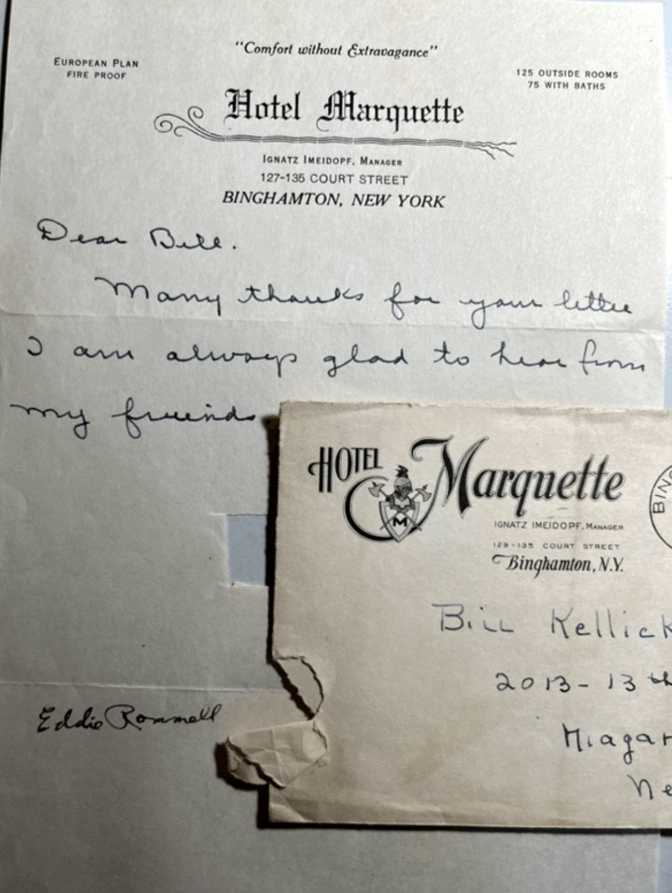 "Comfort without Extravagance"
EUROPEAN PLAN
FIRE PROOF
125 OUTSIDE ROOMS
75 WITH BATHS
Hotel Marquette
IGNATZ IMEIDOPF, MANAGER
127-135 COURT STREET
BINGHAMTON, NEW YORK
Dear Bill.
Many thanks for your letter
I am always glad to hear from
my friends
HOTEL Marquette
M
IGNATZ IMEIDOPF, MANAGER
129-135 COURT STREET
Binghamton, N.Y.
BING
Bill Kellick
2013-13th
Niagar
Ne
Eddie Rommell